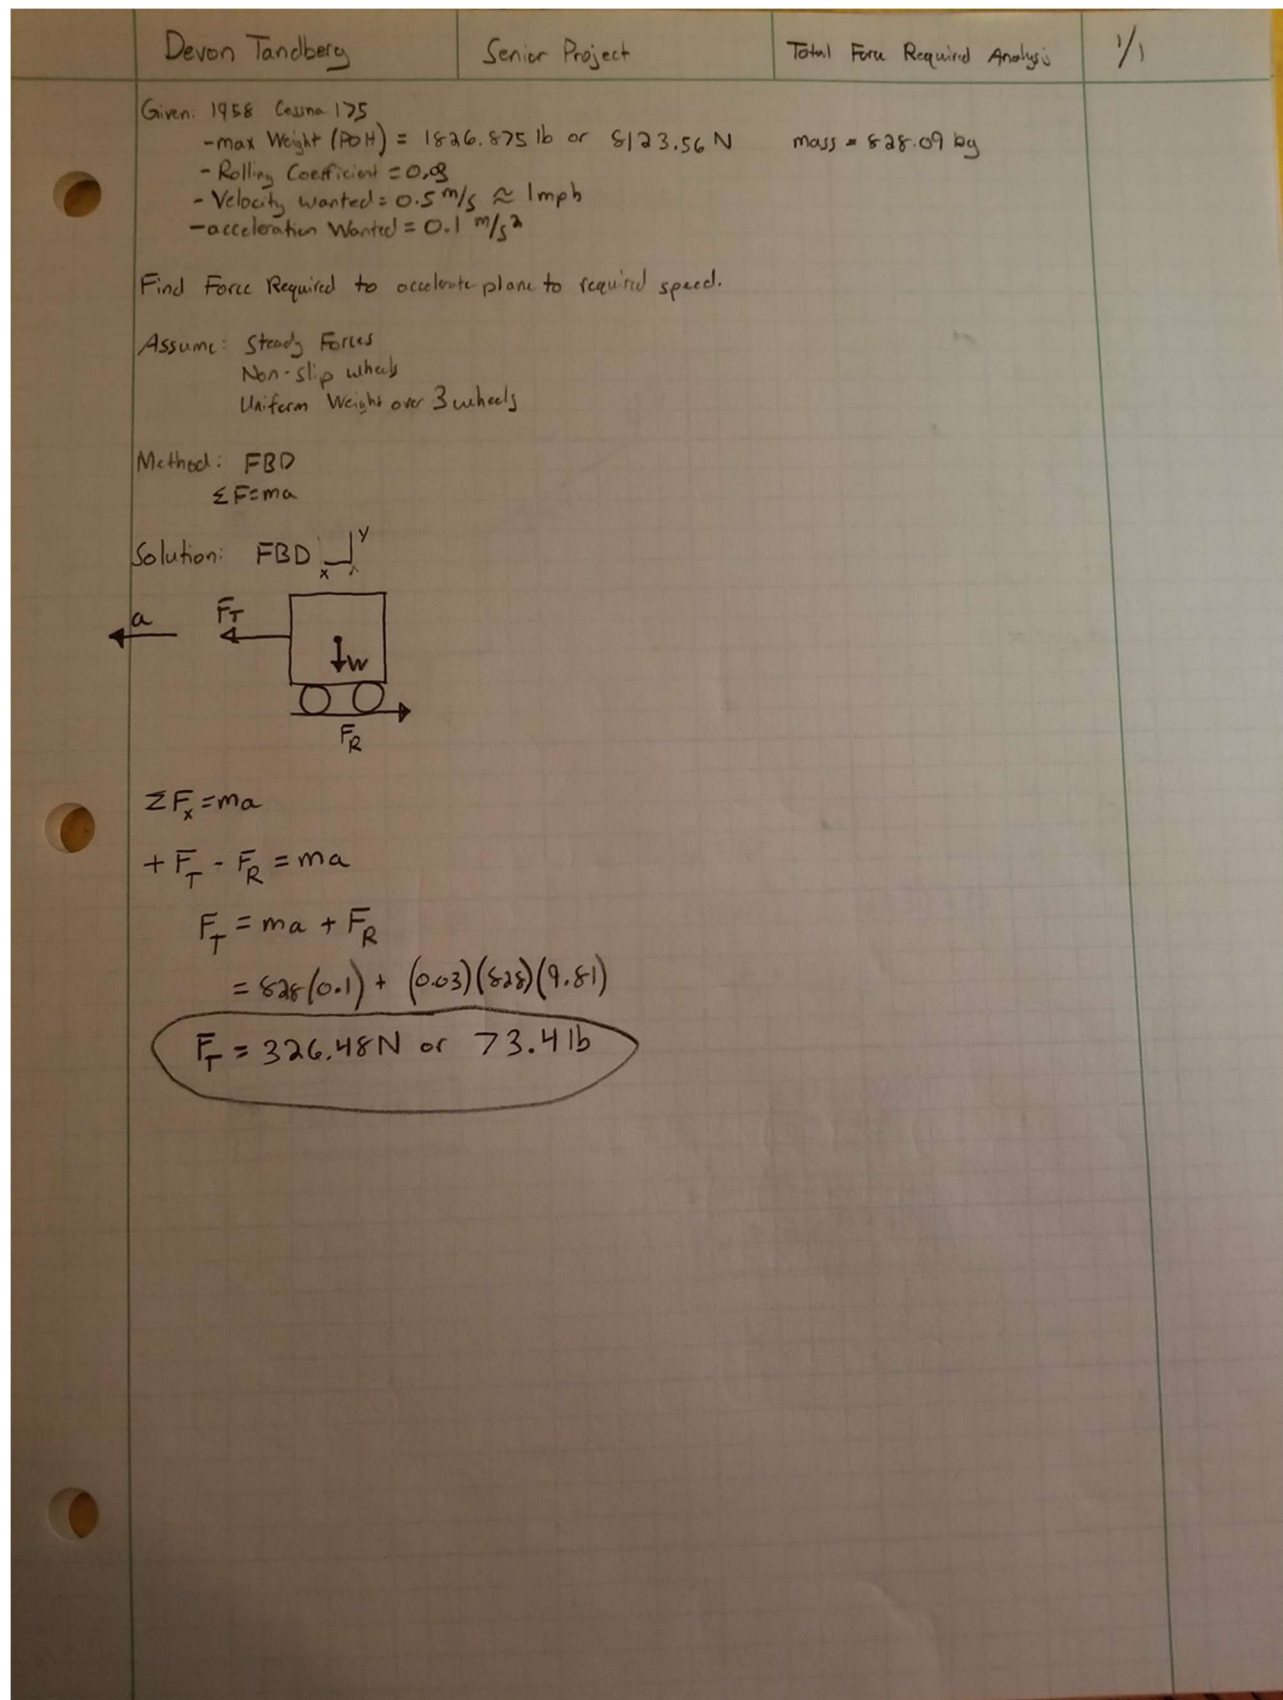 Devon Tandberg Senior Project Total Force Required Analysis 1/1
Given: 1958 Cessna 175
-max Weight (POH) = 1826.875 lb or 8123.56 N mass = 828.09 kg
- Rolling Coefficient = 0.03
- Velocity wanted = 0.5 m/s ≈ 1mph
-acceleration Wanted = 0.1 m/s²
Find Force Required to accelerate plane to required speed.
Assume: Steady Forces
Non-slip wheels
Uniform Weight over 3 wheels
Method: FBD
ΣF=ma
Solution: FBD y
x
a F_T
W
F_R
ΣF_x=ma
+F_T - F_R = ma
F_T = ma + F_R
= 828(0.1) + (0.03)(828)(9.81)
F_T = 326.48N or 73.4 lb